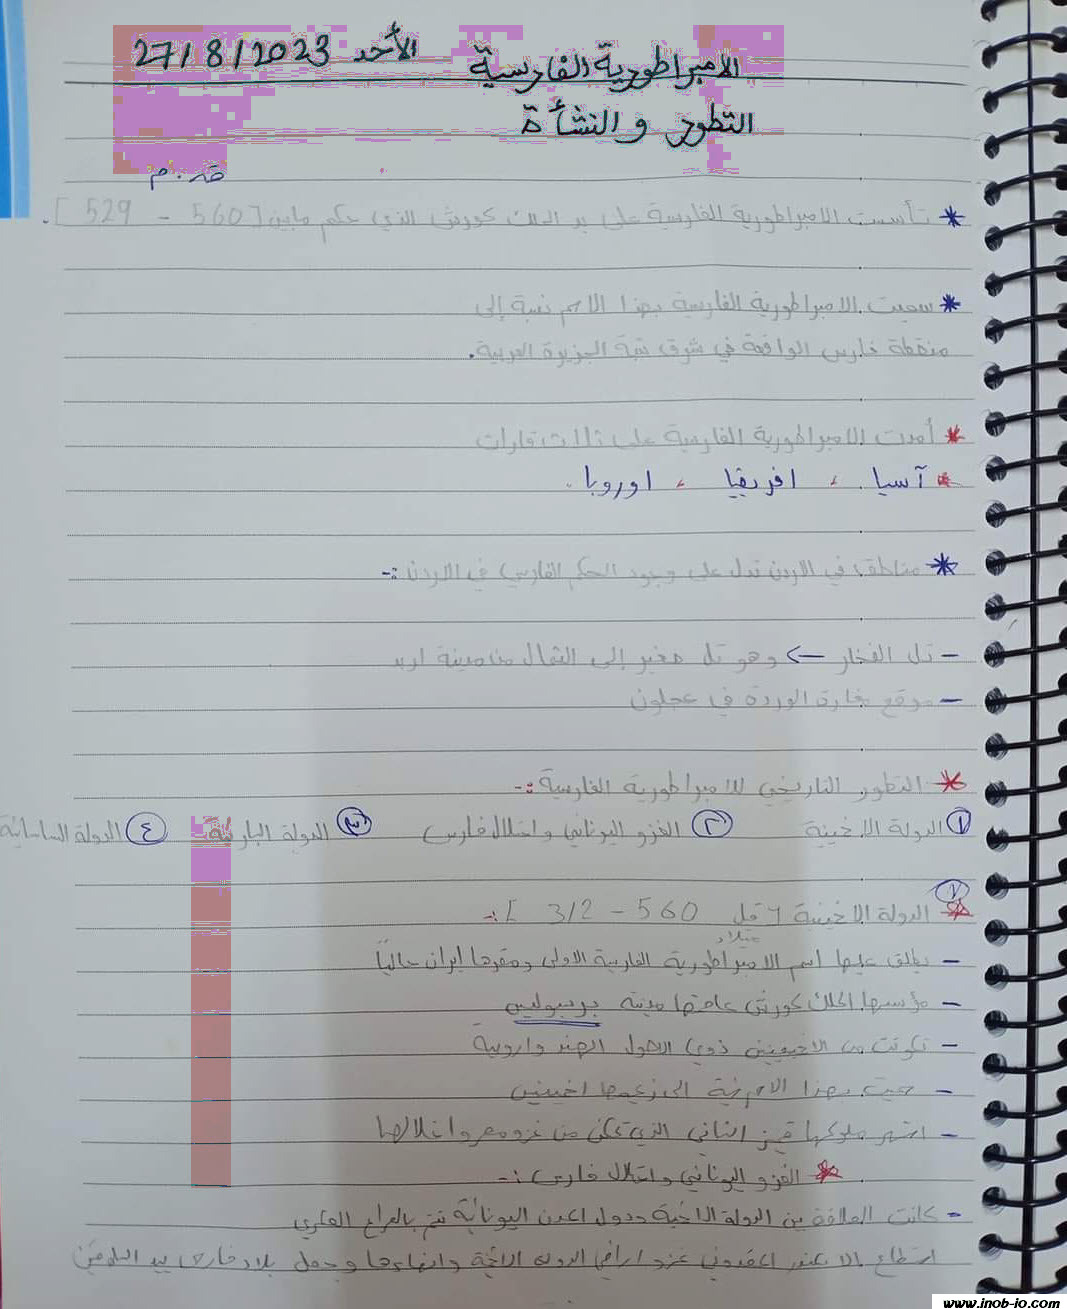 الأحد 27/8/2023
الامبراطورية الفارسية
التطور والنشأة
ق.م
* تأسست الامبراطورية الفارسية على يد الملك كورش الذي حكم مابين [560 - 529].
* سميت الامبراطورية الفارسية بهذا الاسم نسبة إلى
منقطة فارس الواقعة في شرق شبة الجزيرة العربية.
* أمدت الامبراطورية الفارسية على ثلاث قارات
* آسيا، افريقيا، اوروبا.
* مناطق في الاردن تدل على وجود الحكم الفارسي في الاردن :-
- تل الفخار ← وهو تل صغير إلى الشمال من مدينة اربد
- موقع مغارة الوردة في عجلون
* التطور التاريخي للامبراطورية الفارسية :-
١ الدولة الاخينية ٢ الغزو اليوناني واحتلال فارس ٣ الدولة البارثية ٤ الدولة الساسانية
١
* الدولة الاخينية قبل 560 - 312 :-
ميلاد
- يطلق عليها اسم الامبراطورية الفارسية الاولى ومقرها ايران حالياً
- مؤسسها الملك كورش عاصتها مدينة برسبوليس
- تكونت من الاخيمينين ذوي الاصول الهندواروبية
- سميت بهذا الاسم نسبة الى زعيمها اخيمينس
- اشهر ملوكها قمبيز الثاني الذي تمكن من غزو مصر واحتلالها
* الغزو اليوناني واحتلال فارس :-
- كانت العلاقة بين الدولة الاخينية ودول المدن اليونانية تتم بالصراع العسكري
استطاع الاسكندر المقدوني غزو اراضي الدولة الاخينية وانهاءها وجعل بلاد فارس بيد السلوقين
www.jnob-jo.com